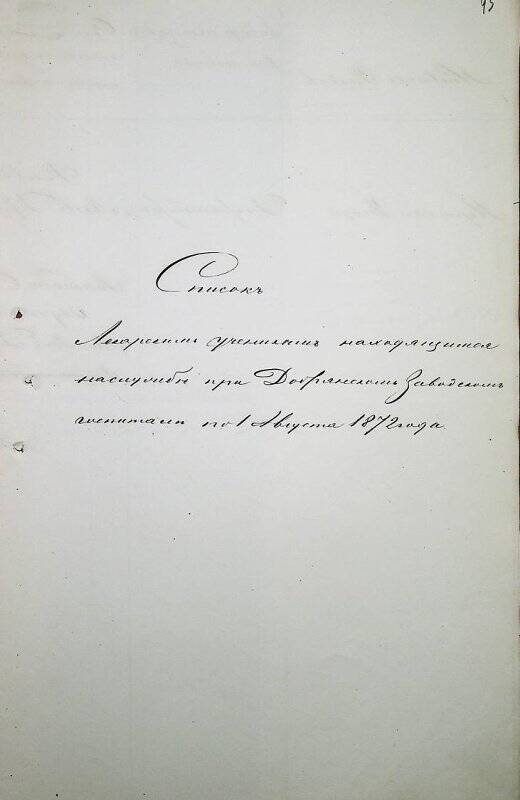 93
Списокъ
Лекарскимъ ученикамъ находящимся
наслужбѣ при Добрянскомъ Заводскомъ
госпиталѣ по 1 Августа 1872 года